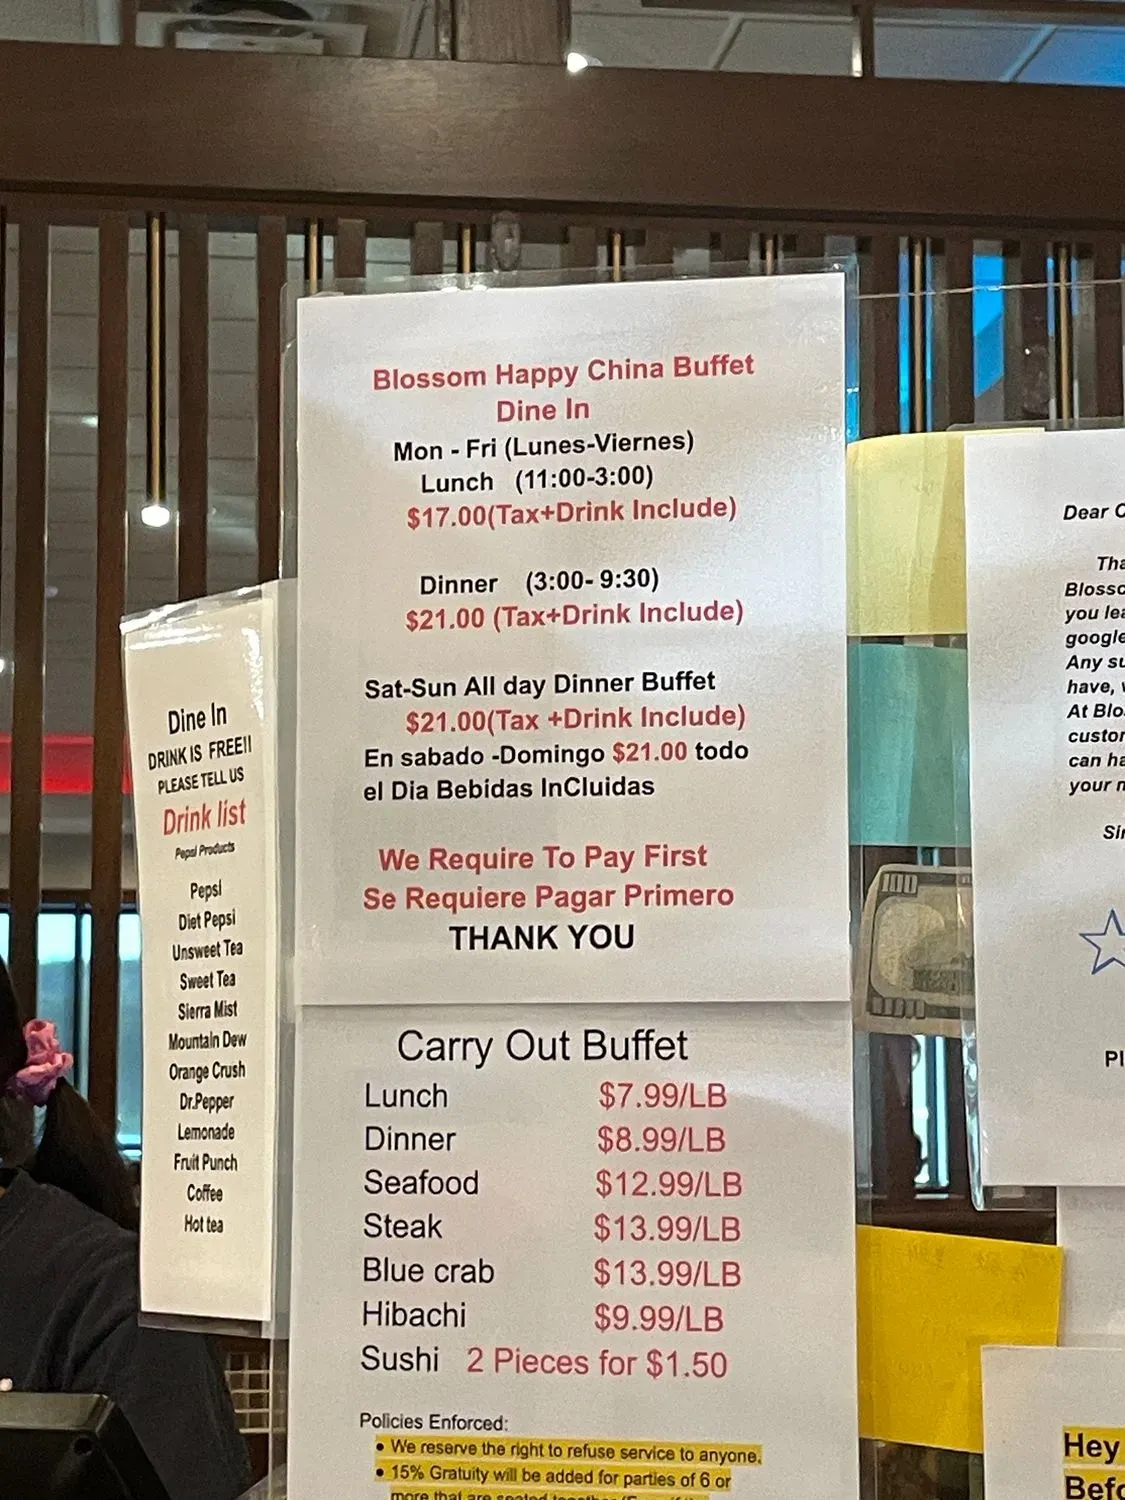 Blossom Happy China Buffet
Dine In
Mon - Fri (Lunes-Viernes)
Lunch (11:00-3:00)
$17.00(Tax+Drink Include)
Dinner (3:00- 9:30)
$21.00 (Tax+Drink Include)
Sat-Sun All day Dinner Buffet
$21.00(Tax +Drink Include)
En sabado -Domingo $21.00 todo
el Dia Bebidas InCluidas
We Require To Pay First
Se Requiere Pagar Primero
THANK YOU
Carry Out Buffet
Lunch $7.99/LB
Dinner $8.99/LB
Seafood $12.99/LB
Steak $13.99/LB
Blue crab $13.99/LB
Hibachi $9.99/LB
Sushi 2 Pieces for $1.50
Policies Enforced:
• We reserve the right to refuse service to anyone.
• 15% Gratuity will be added for parties of 6 or
more that are seated together
Dine In
DRINK IS FREE!!
PLEASE TELL US
Drink list
Pepsi Products
Pepsi
Diet Pepsi
Unsweet Tea
Sweet Tea
Sierra Mist
Mountain Dew
Orange Crush
Dr.Pepper
Lemonade
Fruit Punch
Coffee
Hot tea
Dear
you
google
Any
have,
At
can
your
100
Hey